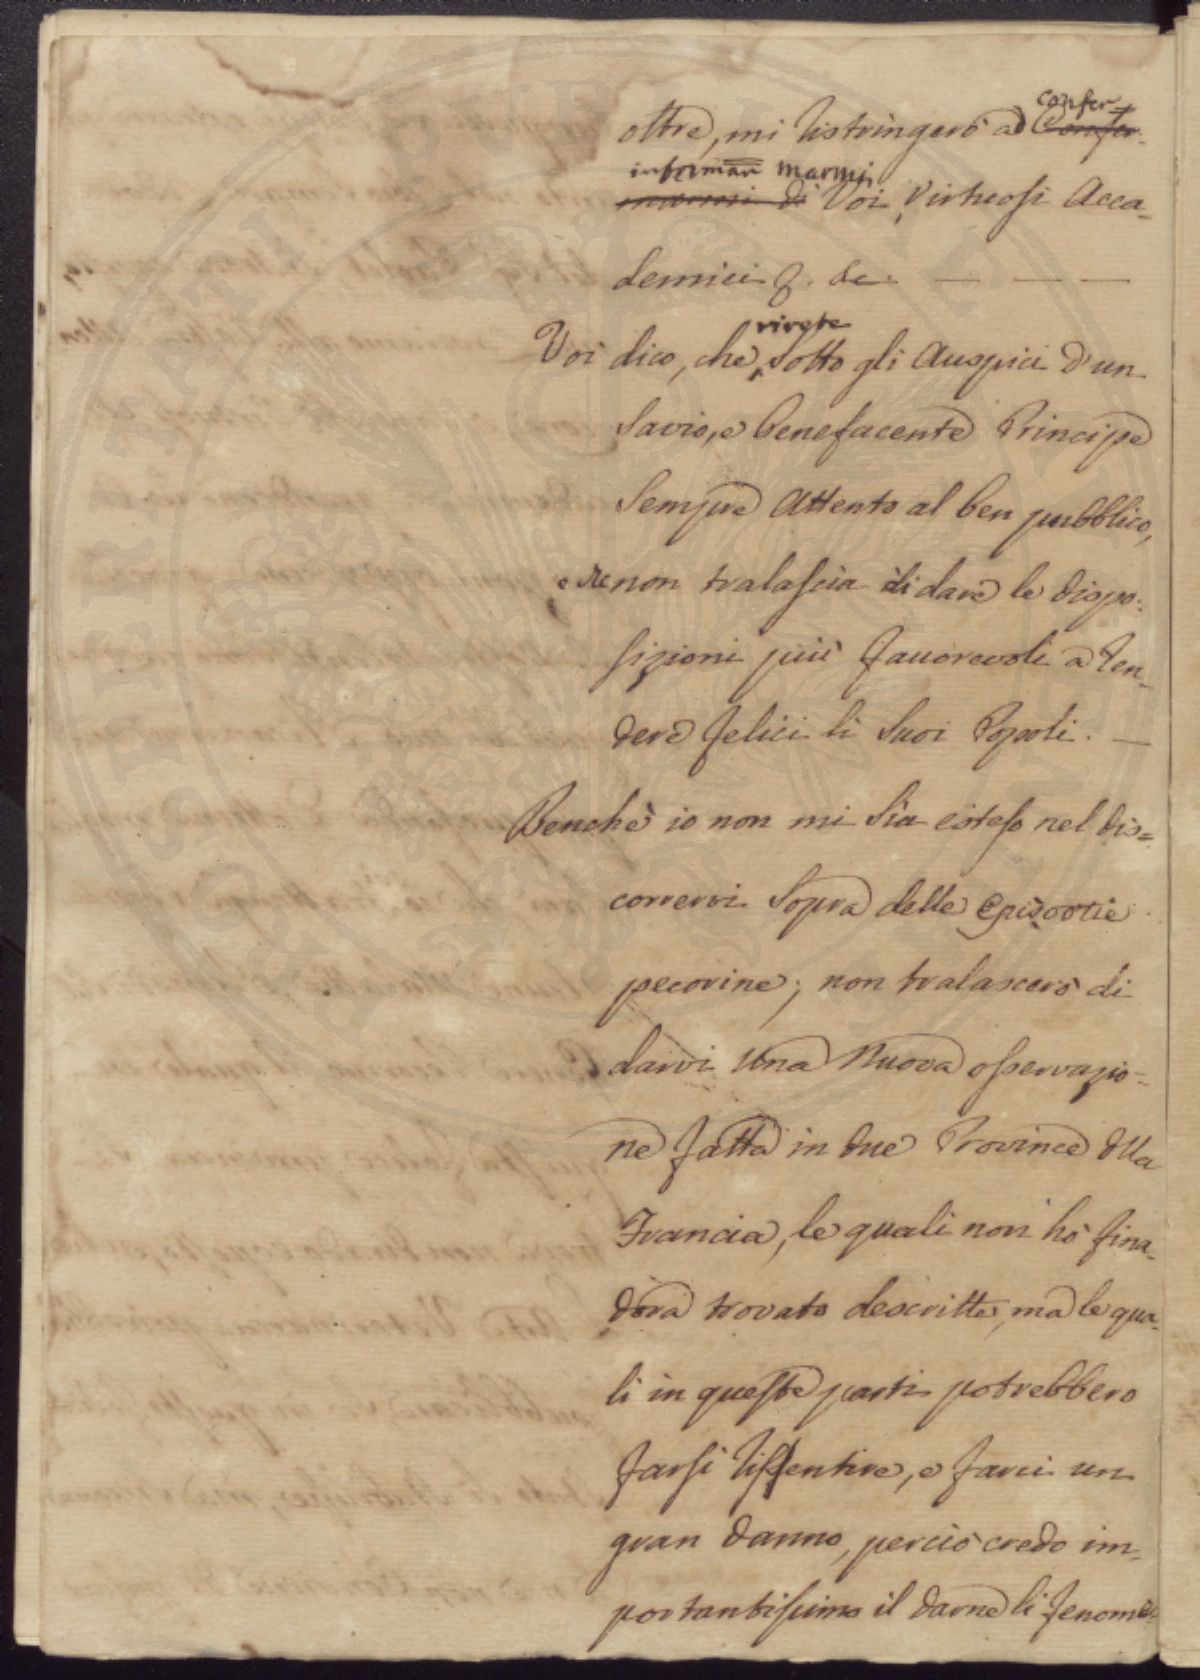 confer-
oltre, mi ristringerò ad Confer-
informar marmi
marmi di Voi, Virtuosi Acca=
demici &. &c. — — —
vivete
Voi dico, che sotto gli Auspici d'un
Savio, e benefacente Principe
sempre attento al ben pubblico,
e che non tralascia di dare le dispo-
sizioni più favorevoli a ren-
dere felici li suoi Popoli. —
Benchè io non mi sia esteso nel dis=
corrervi sopra delle Epizootie
pecorine; non tralascerò di
darvi una nuova osservazio=
ne fatta in due Province dlla
Francia, le quali non hò fina-
dora trovato descritte, ma le qua-
li in queste parti potrebbero
farsi rissentire, e farci un
gran danno, perciò credo im-
portantissimo il darne li fenome-